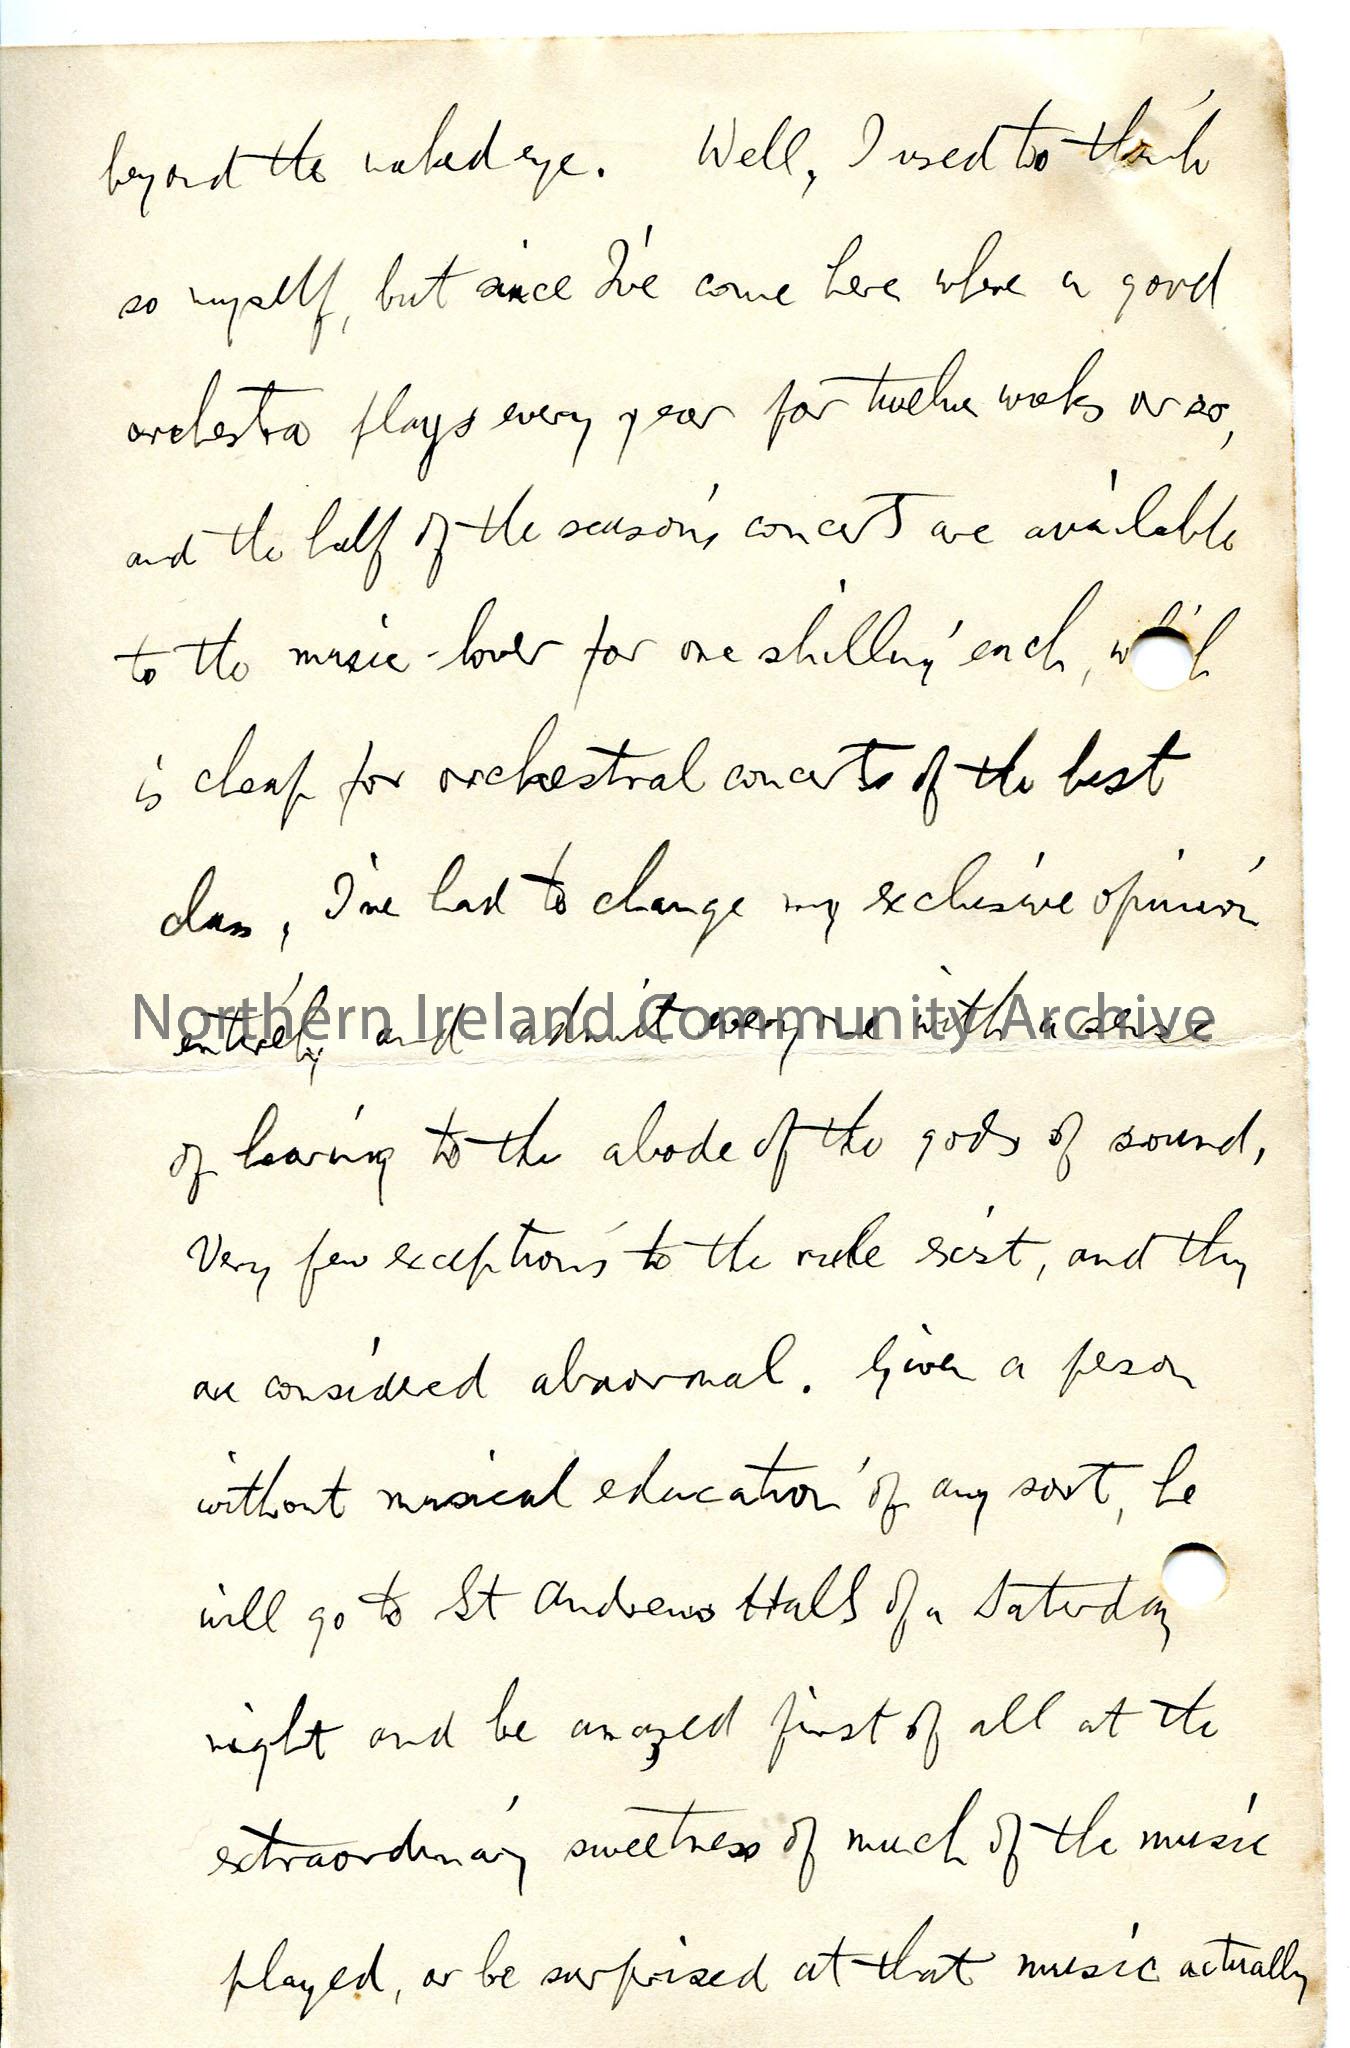 beyond the naked eye. Well, I used to think
so myself, but since I've come here where a good
orchestra plays every year for twelve weeks or so,
and the half of the season's concerts are available
to the music-lover for one shilling each, which
is cheap for orchestral concerts of the best
class, I've had to change my exclusive opinion
entirely and admit every one with a sense
Northern Ireland Community Archive
of hearing to the abode of the gods of sound,
Very few exceptions to the rule exist, and they
are considered abnormal. Given a person
without musical education of any sort, he
will go to St Andrews Halls of a Saturday
night and be amazed first of all at the
extraordinary sweetness of much of the music
played, or be surprised at that music actually